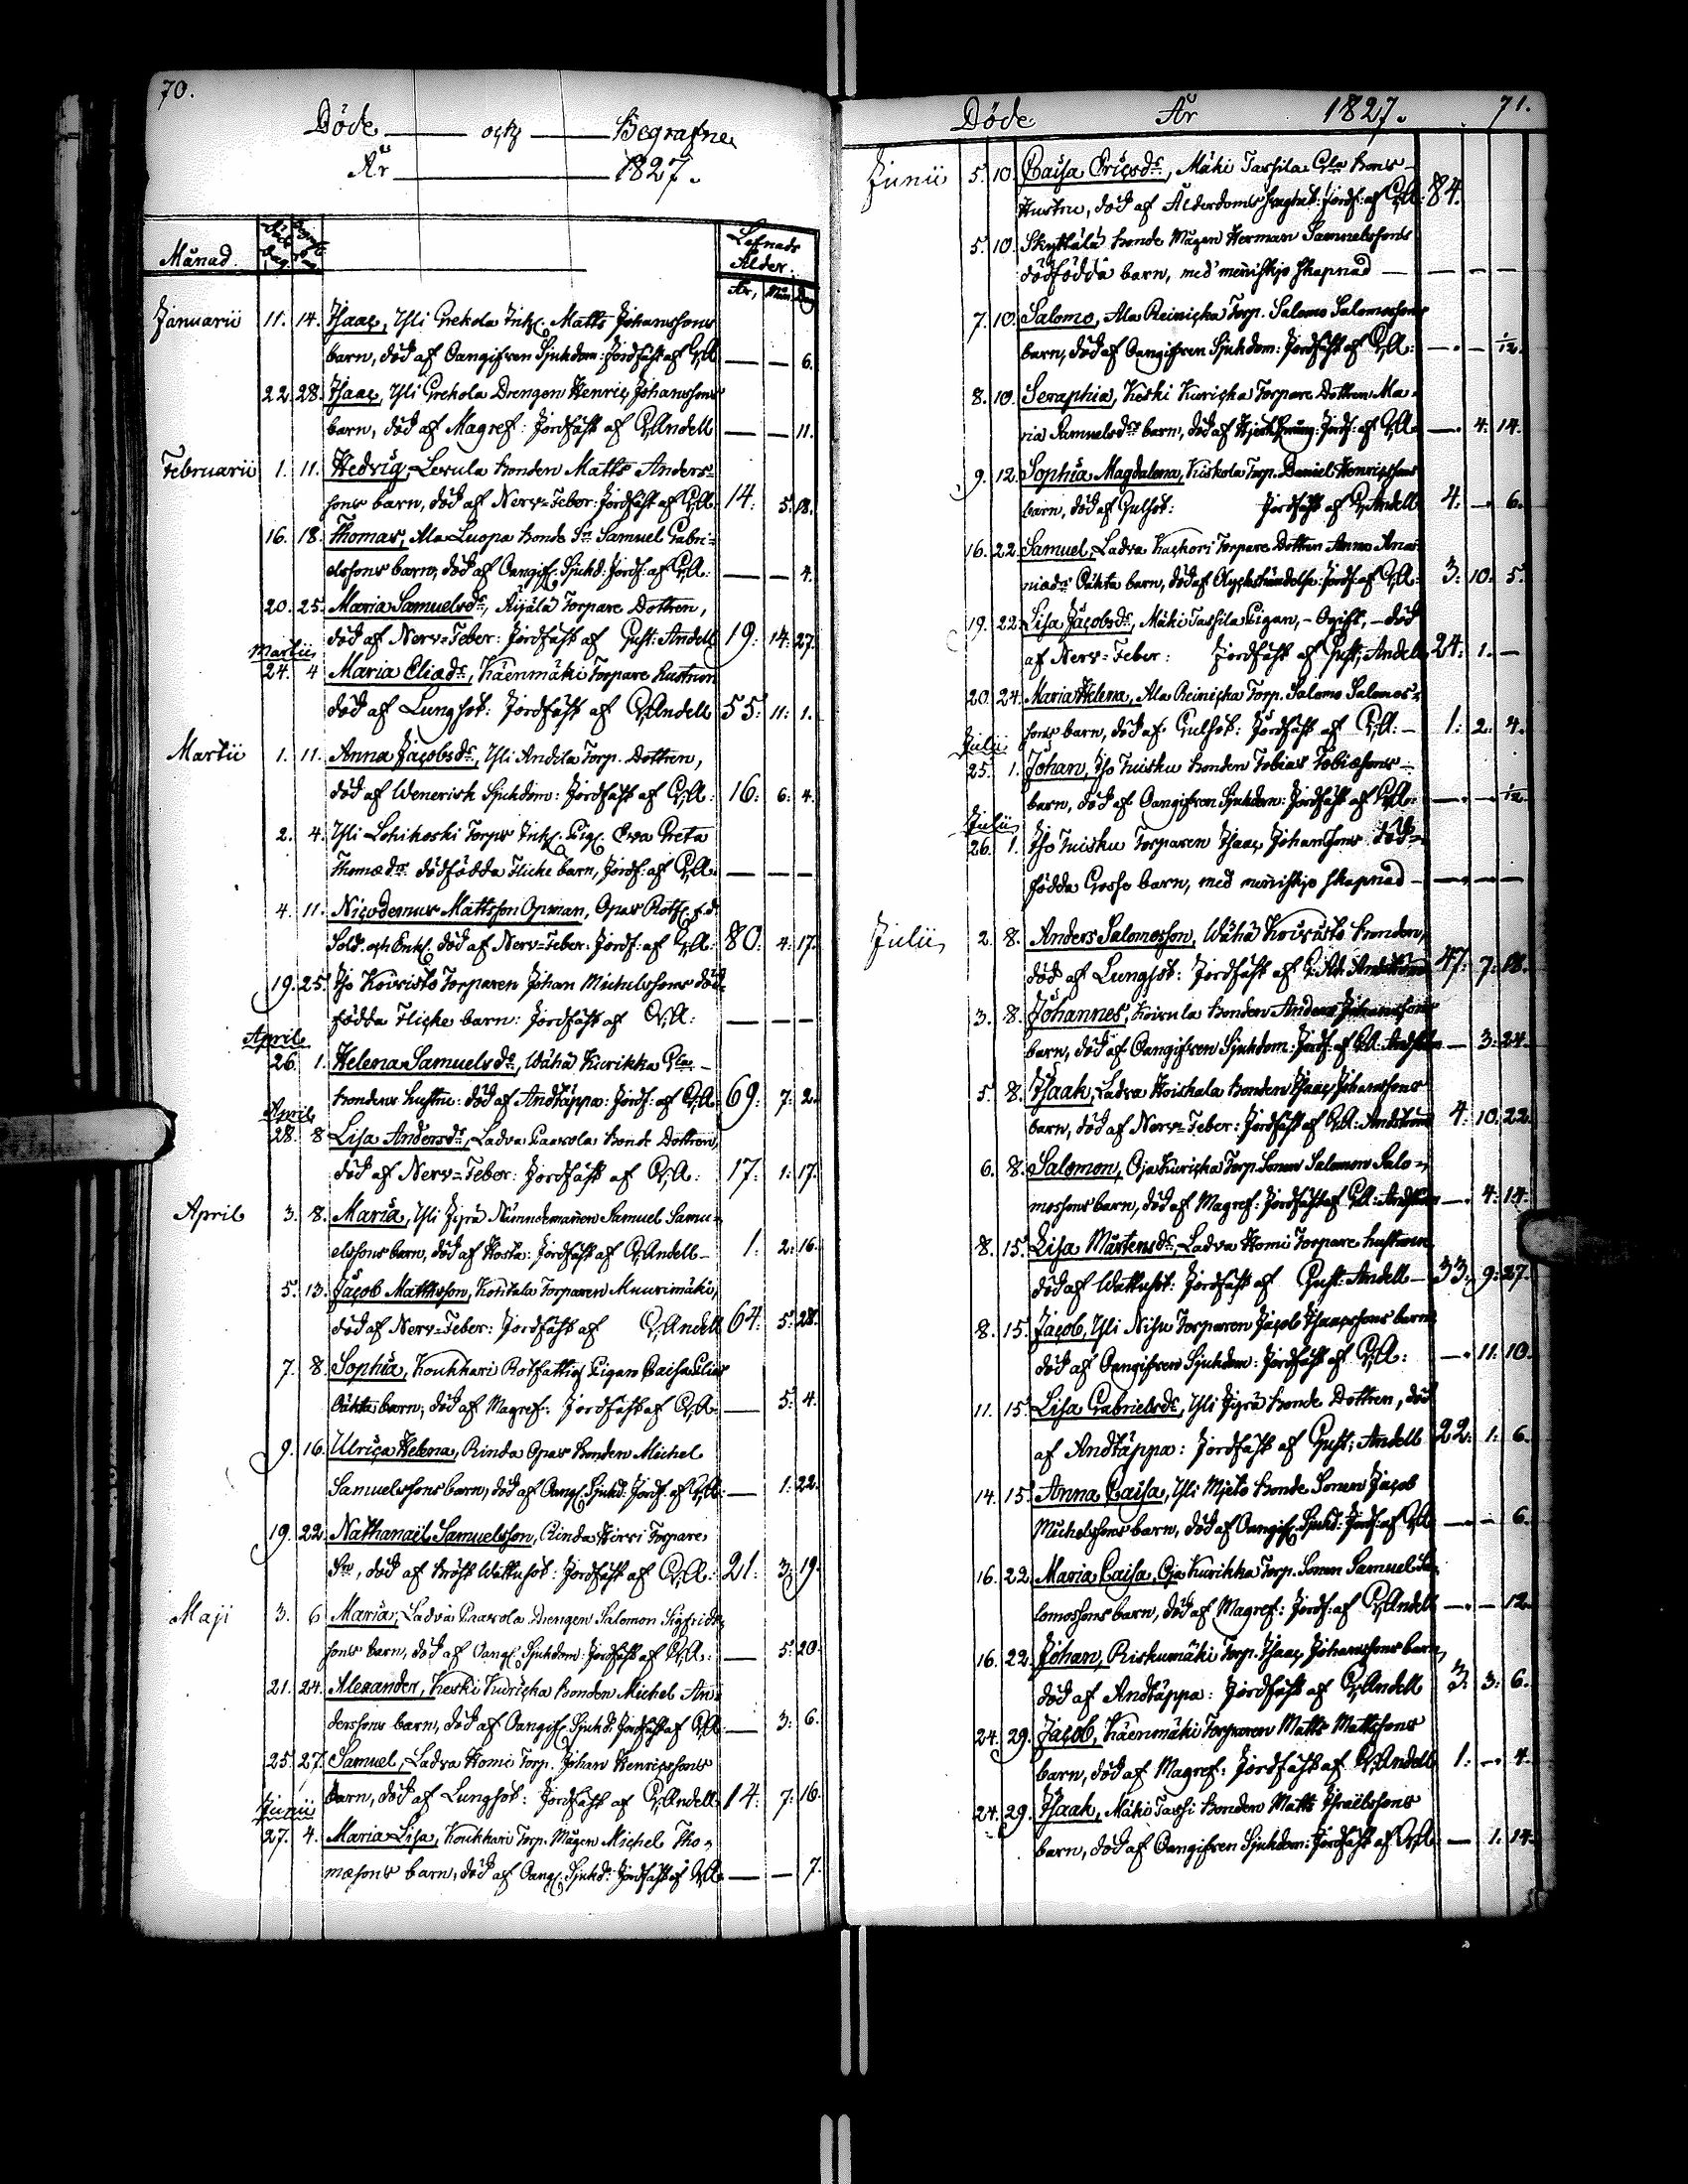 70.
Döde och Begrafne
År 1827.
Månad. Lefnads Ålder.
År, Mån Dag
Januarii 11. 14. Isaac, Yli Grekola Inh. Matts Johanssons
barn, död af Oangifven Sjukdom: Jordfäst af G.A. — — 6.
22. 28. Isaac, Yli Grekola Drengen Henric Johanssons
barn, död af Magref: Jordfäst af G.Andell — — 11.
Februarii 1. 11. Hedvig, Lerula bonden Matts Anders-
sons barn, död af Nerv-Feber: Jordfäst af G.A. 14: 5: 18.
16. 18. Thomas, Ala Luopa bonde Sn Samuel Gabri-
elssons barn, död af Oangif. Sjukd: Jordf: af G.A: — — 4.
20. 25. Maria Samuelsdr, Äijälä Torpare Dottren,
död af Nerv-Feber: Jordfäst af Gust: Andell 19: 14: 27.
Martii
24. 4 Maria Eliædr, Käenmäki Torpare hustrun
död af Lungsot: Jordfäst af G.Andell 55: 11: 1.
Martii 1. 11. Anna Jacobsdr, Yli Andila Torp. Dottren,
död af Wenerisk Sjukdom: Jordfäst af G.A: 16: 6: 4.
2. 4. Yli Lohikoski Torps Inh. Pig. Eva Greta
Thomædrs dödfödda Flicke barn, Jordf: af G.A. — — —
4. 11. Nicodemus Mattsson Opman, Opas Rote. f.d.
Sold. och Enkl. död af Nerv-Feber: Jordf: af G.A: 80: 4: 17.
19. 25. Iso Koivisto Torparen Johan Michelssons död-
födda Flicke barn: Jordfäst af G.A: — — —
April
26. 1. Helena Samuelsdr, Wähä Kurikka Gla –
bondens hustru: död af Andtäppa: Jordf: af G.A: 69: 7: 2.
April
28. 8 Lisa Andersdr, Ladva Paavola bonde Dottren,
död af Nerv-Feber: Jordfäst af G.A: 17: 1: 17.
April 3. 8. Maria, Yli Jyrä Nämndemannen Samuel Samu-
elssons barn, död af Hosta: Jordfäst af G.Andell – 1: 2: 16.
5. 13. Jacob Matthsson, Kohtala Torparen Muurimäki,
död af Nerv-Feber: Jordfäst af G.Andell 64: 5: 28.
7. 8. Sophia, Koukkari Rotfattig Pigan Caisa Elias
Oäkta barn, död af Magref: Jordfäst af G.A: — 5: 4.
9. 16. Ulrica Helena, Rinda Opas bonden Michel
Samuelssons barn, död af Oang. Sjukd: Jordf. af G.A: — 1: 22.
19. 22. Nathanail Samuelsson, Rinda Hirvi Torpare
Sn, död af bröst Wattusot: Jordfäst af G.A: 21: 3: 19.
Maji 3. 6 Maria, Ladva Paavola Drengen Salomon Sigfrids-
sons barn, död af Oang. Sjukdom: Jordfäst af G.A: — 5: 20.
21. 24. Alexander, Keski Kuricka bonden Michel An-
derssons barn, död af Oangif. Sjukd: Jordfäst af G.A: — 3: 6.
25. 27. Samuel, Ladva Homi Torp. Johan Henricssons
barn, död af Lungsot: Jordfäst af G.Andell 14: 7: 16.
Junii
27. 4. Maria Lisa, Koukkari Torp. Mågen Michel Tho-
mæsons barn, död af Oang. Sjukd: Jordfäst af G.A: — — 7.
Döde År 1827. 71.
Junii 5. 10. Caisa Ericsdr, Mäki Tassila Gla bons –
Hustru, död af Ålderdoms svaghet: Jordf: af G.A: 84.
5. 10. Skyttälä bonde Mågen Herman Samuelssons
dödfödda barn, med menniskjo skapnad — — — —
7. 10. Salomo, Ala Reinicka Torp. Salomo Salomossons
barn, död af Oangifven Sjukdom: Jordfäst af G.A: — — 1/12.
8. 10. Seraphia, Keski Kuricka Torpare Dottren Ma-
ria Samuelsdrs barn, död af Jordf: af G.A: — 4: 14.
9. 12. Sophia Magdalena, Kiskola Torp. Daniel Henricssons
barn, död af Gulsot: Jordfäst af G.Andell 4: — 6.
16. 22. Samuel, Ladva Kackori Torpare Dottren Anna Ana-
niædrs Oäkta barn, död af Olyckshändelse: Jordf: af G.A: 3: 10: 5.
19. 22. Lisa Jacobsdr, Mäki Tassila Pigan, – Ogift, – död
af Nerv-Feber: Jordfäst af Gust: Andell 24: 1. —
20. 24. Maria Helena, Ala Reinicka Torp. Salomo Salomos-
sons barn, död af Gulsot: Jordfäst af G.A: – 1: 2: 4.
Julii
25. 1. Johan, Iso Tuisku bonden Tobias Tobiæsons –
barn, död af Oangifven Sjukdom: Jordfäst af G.A: — — 1/12
Julii
26. 1. Iso Tuisku Torparen Isaac Johanssons död-
födda Gosse barn, med menniskjo skapnad — — — —
Julii 2. 8. Anders Salomosson, Wähä Koivisto bonden,
död af Lungsot: Jordfäst af 47: 7: 18.
3. 8. Johannes, Koivula bonden Anders Johanssons
barn, död af Oangifven Sjukdom: Jordf: af — 3: 24.
5. 8. Isaak, Ladva Koiskala bonden Isaac Johanssons
barn, död af Nerv-Feber: Jordfäst af 4: 10: 22.
6. 8. Salomon, Oja Kuricka Torp. Sonen Salomon Salo-
mossons barn, död af Magref: Jordfäst af — 4: 14.
8. 15. Lisa Mårtensdr, Ladva Homi Torpare hustrun
död af Wattusot: Jordfäst af Gust: Andell – 33: 9: 27.
8. 15. Jacob, Yli Nisu Torparen Jacob Isaacssons barn,
död af Oangifven Sjukdom: Jordfäst af G.A: — 11: 10.
11. 15. Lisa Gabrielsdr, Yli Jyrä bonde Dottren, död
af Andtäppa: Jordfäst af Gust: Andell 22: 1: 6.
14. 15. Anna Caisa, Yli Mjeto bonde Sonen Jacob
Michelssons barn, död af Oangif. Sjukd: Jordf: af G.A: — — 6.
16. 22. Maria Caisa, Oja Kurikka Torp. Sonen Samuel Sa-
lomossons barn, död af Magref: Jordf: af G.Andell — — 12.
16. 22. Johan, Riskumäki Torp. Isaac Johanssons barn,
död af Andtäppa: Jordfäst af G.Andell 3: 3: 6.
24. 29. Jacob, Käenmäki Torparen Matts Mattssons
barn, död af Magref: Jordfäst af G.Andell 1: — 4.
24. 29. Isaak, Mäki Tassi bonden Matts Israelssons
barn, död af Oangifven Sjukdom: Jordfäst af G.A: — 1: 14.